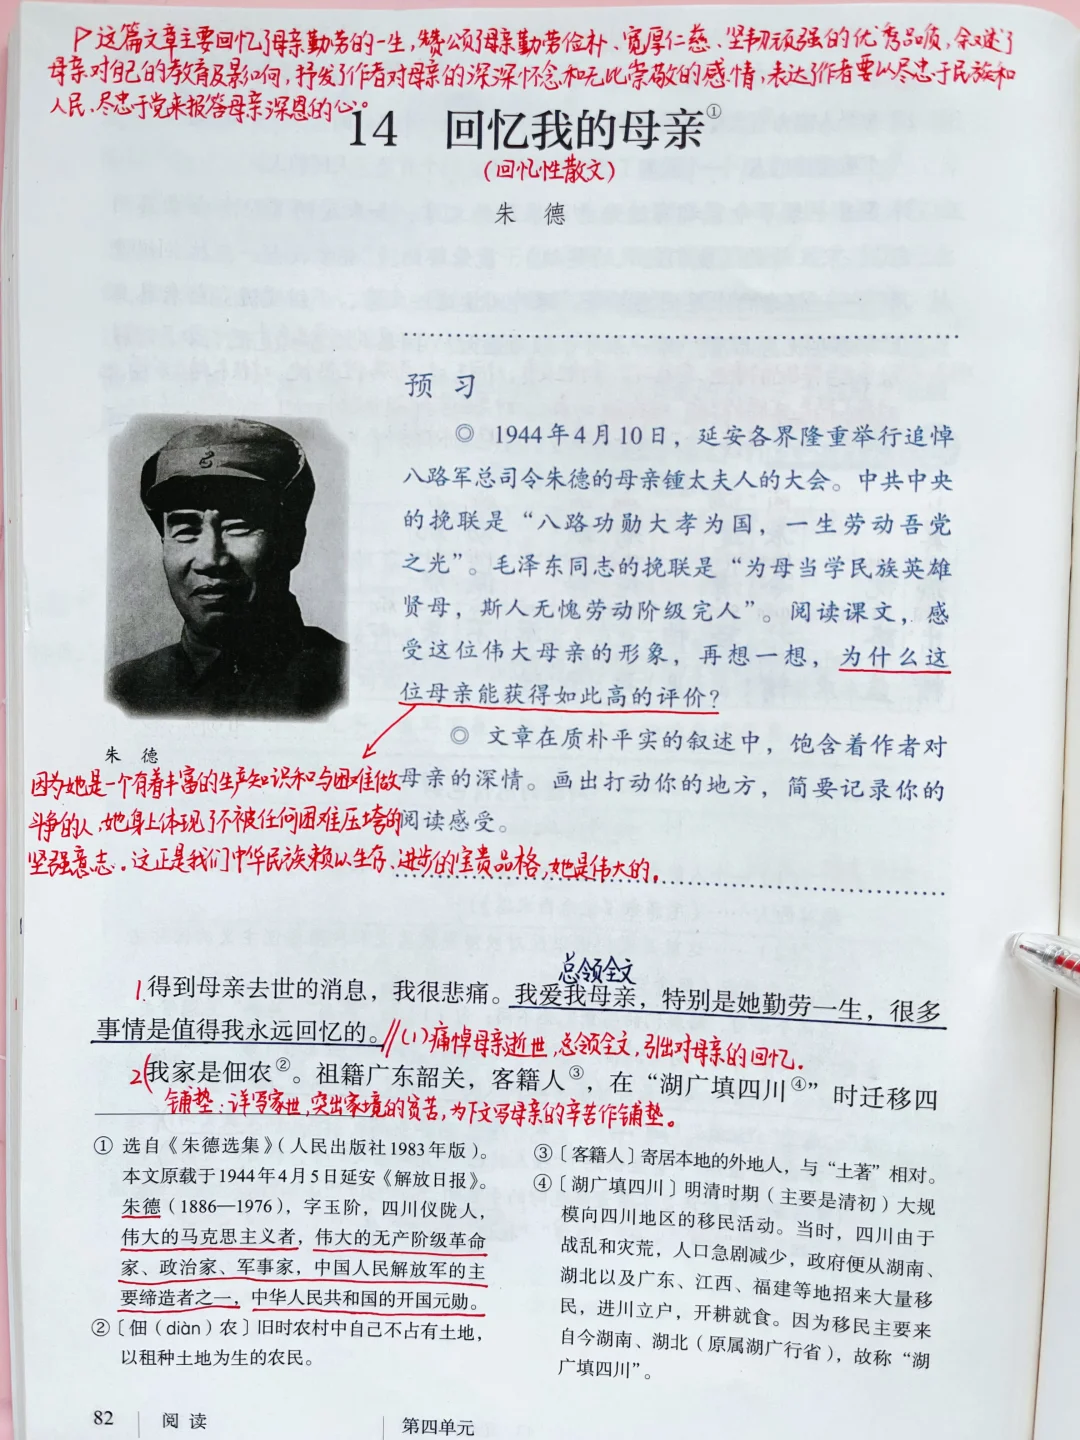 这篇文章主要回忆了母亲勤劳的一生,赞颂了母亲勤劳俭朴、宽厚仁慈、坚韧顽强的优秀品质,叙述了
母亲对自己的教育及影响,抒发了作者对母亲的深深怀念和无比崇敬的感情,表达了作者要以尽忠于民族和
人民、尽忠于党来报答母亲深恩的心。
14 回忆我的母亲①
(回忆性散文)
朱 德
预 习
◎ 1944年4月10日，延安各界隆重举行追悼
八路军总司令朱德的母亲锺太夫人的大会。中共中央
的挽联是“八路功勋大孝为国，一生劳动吾党
之光”。毛泽东同志的挽联是“为母当学民族英雄
贤母，斯人无愧劳动阶级完人”。阅读课文，感
受这位伟大母亲的形象，再想一想，为什么这
位母亲能获得如此高的评价？
◎ 文章在质朴平实的叙述中，饱含着作者对
母亲的深情。画出打动你的地方，简要记录你的
阅读感受。
朱 德
因为她是一个有着丰富的生产知识和与困难做
斗争的人,她身上体现了不被任何困难压垮的
坚强意志。这正是我们中华民族赖以生存、进步的宝贵品格,她是伟大的。
总领全文
1.得到母亲去世的消息，我很悲痛。我爱我母亲，特别是她勤劳一生，很多
事情是值得我永远回忆的。//(1)痛悼母亲逝世,总领全文,引出对母亲的回忆.
2(我家是佃农②。祖籍广东韶关，客籍人③，在“湖广填四川④”时迁移四
铺垫:详写家世,突出家境的贫苦,为下文写母亲的辛苦作铺垫。
① 选自《朱德选集》（人民出版社1983年版）。
本文原载于1944年4月5日延安《解放日报》。
朱德（1886—1976），字玉阶，四川仪陇人，
伟大的马克思主义者，伟大的无产阶级革命
家、政治家、军事家，中国人民解放军的主
要缔造者之一，中华人民共和国的开国元勋。
②〔佃（diàn）农〕旧时农村中自己不占有土地，
以租种土地为生的农民。
③〔客籍人〕寄居本地的外地人，与“土著”相对。
④〔湖广填四川〕明清时期（主要是清初）大规
模向四川地区的移民活动。当时，四川由于
战乱和灾荒，人口急剧减少，政府便从湖南、
湖北以及广东、江西、福建等地招来大量移
民，进川立户，开耕就食。因为移民主要来
自今湖南、湖北（原属湖广行省），故称“湖
广填四川”。
82 阅 读 第四单元